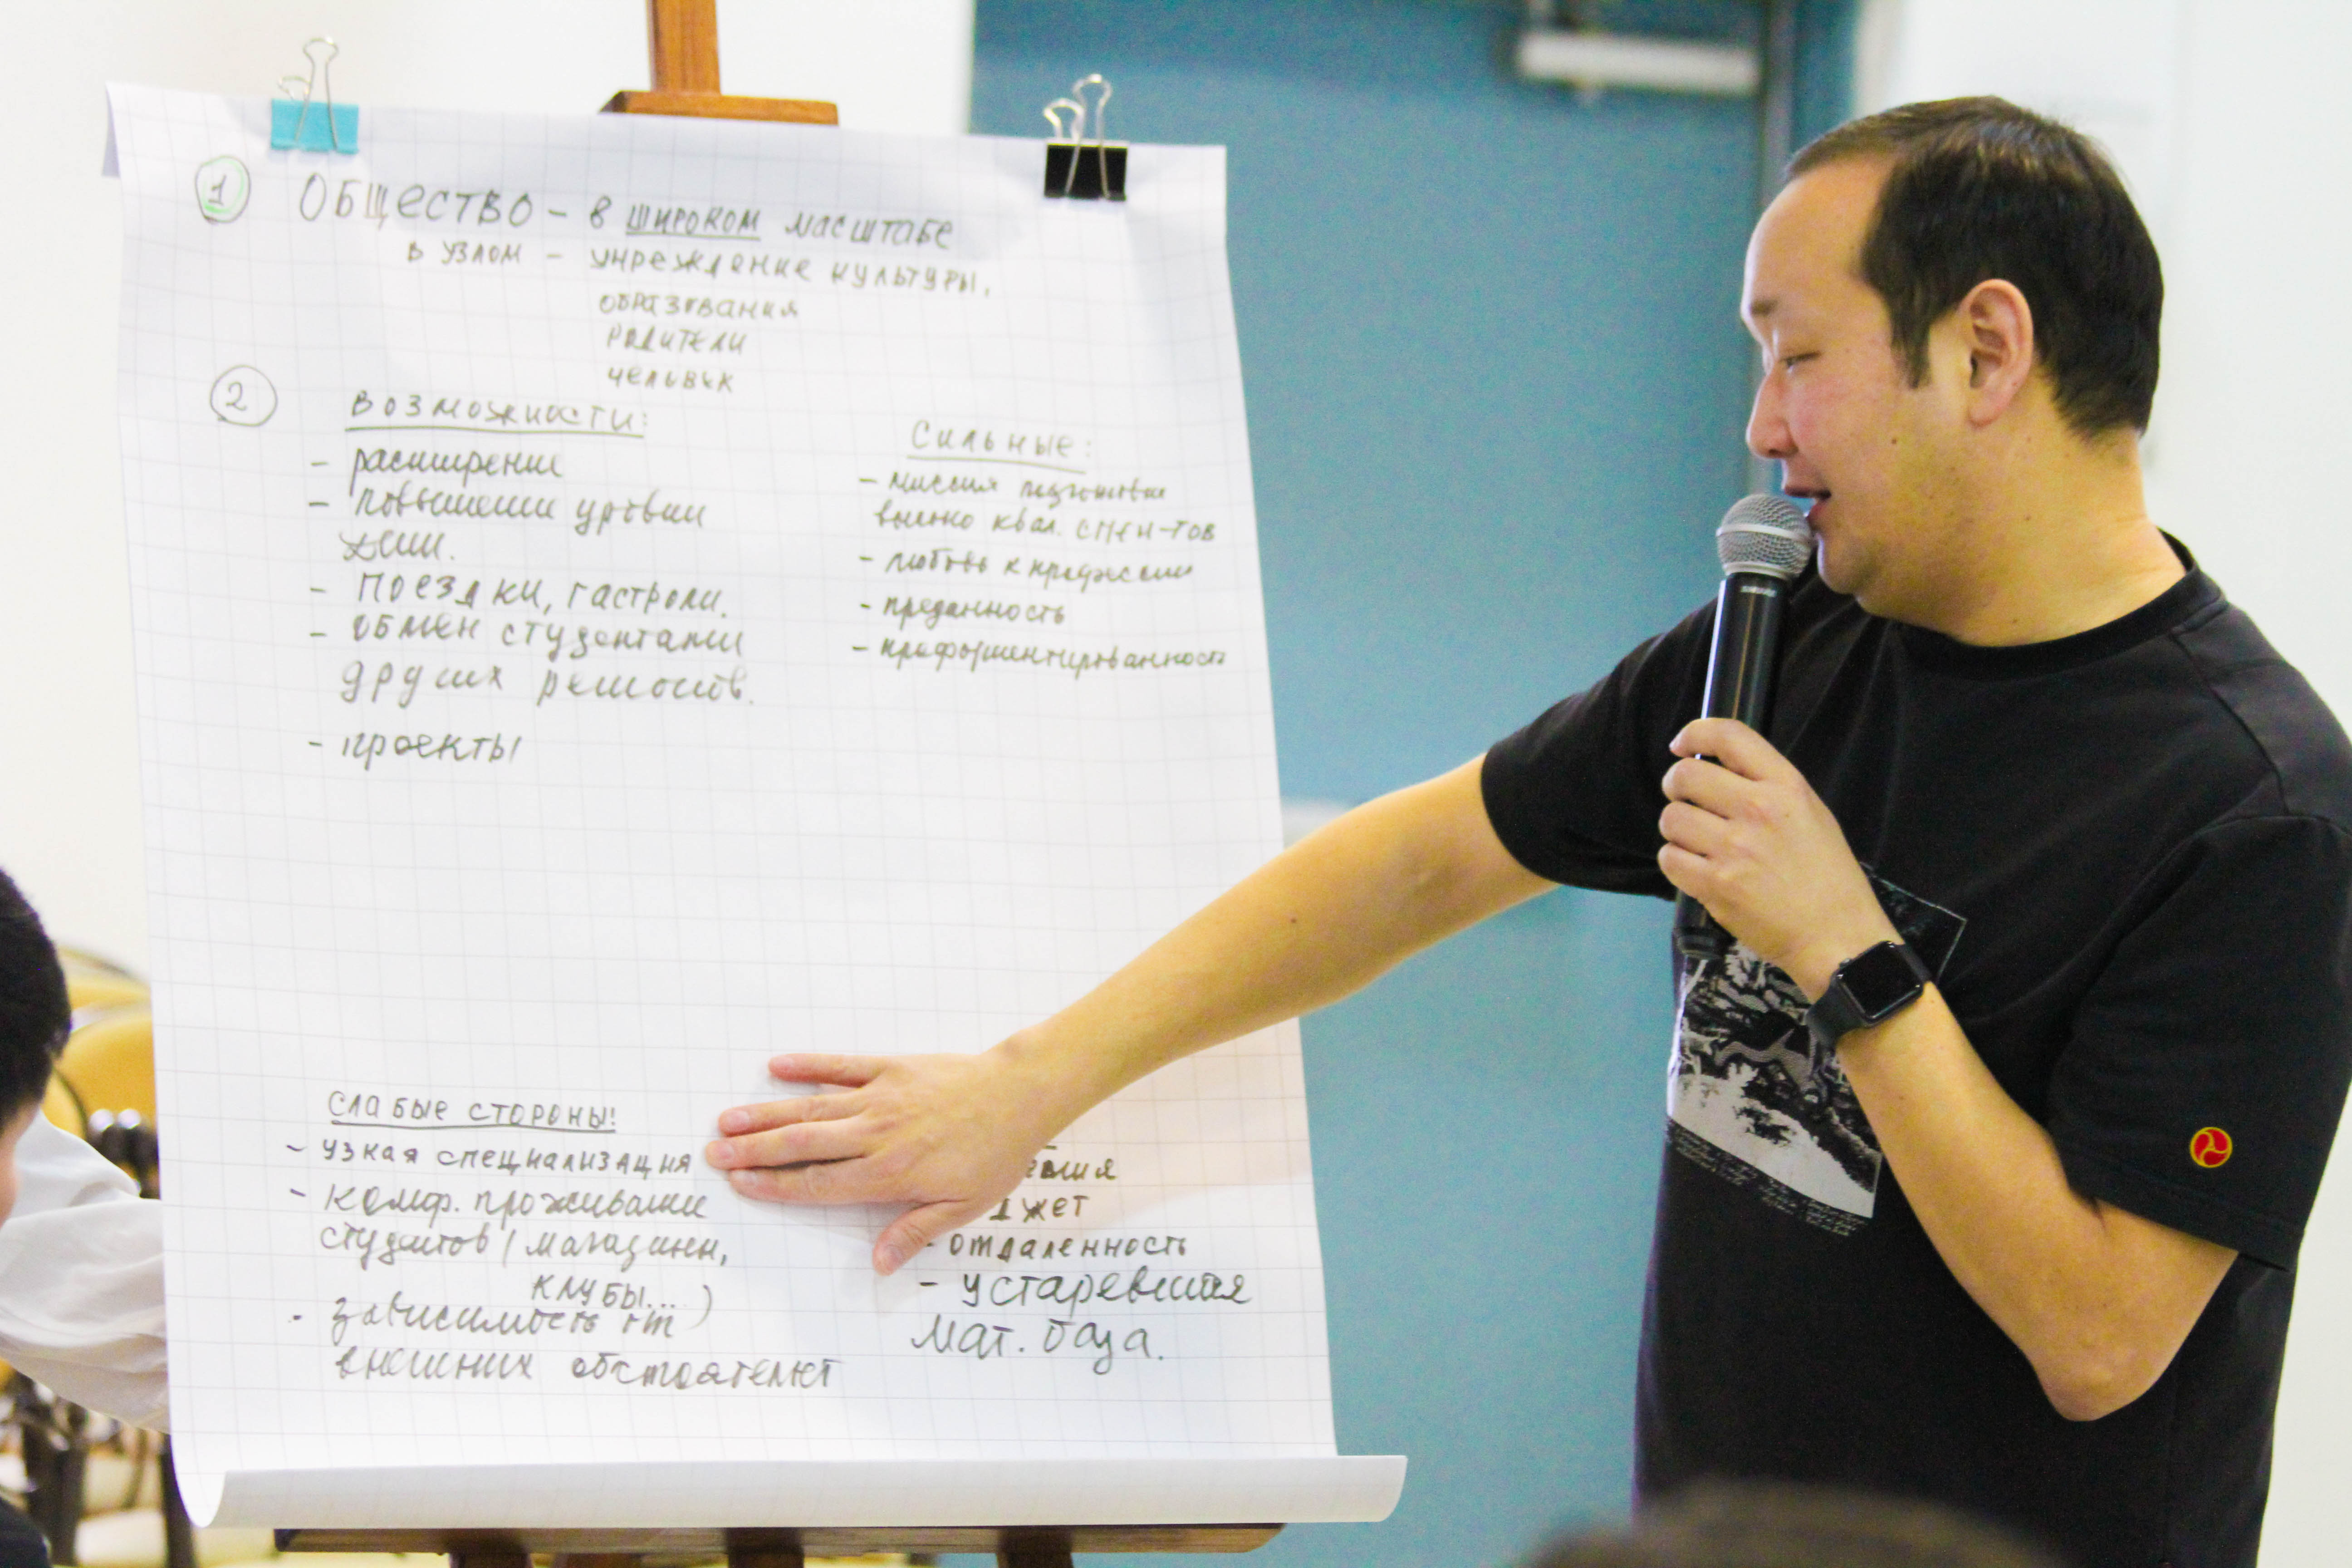 1 ОБЩЕСТВО – в широком масштабе
в узлом – учреждение культуры,
образования
родители
человек
2
Возможности:
– расширение
– повышении уровни
жизни.
– поездки, гастроли.
– обмен студентами
других реместв.
– проекты
Сильные:
– миссия подготовки
высоко квал. спец-тов
– любовь к профессии
– преданность
– профориентированность
Слабые стороны!
– узкая специализация
– комф. проживание
студентов (магазины,
клубы...)
- зависимость от
внешних обстоятельст
джет
- отдаленность
– устаревшая
мат. база.